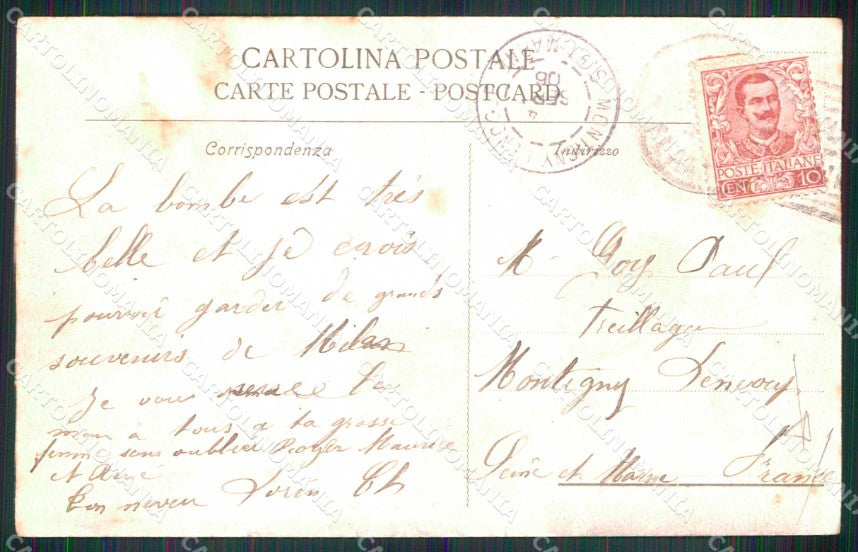 CARTOLINA POSTALE
CARTE POSTALE - POSTCARD
Corrispondenza
Indirizzo
POSTE ITALIANE
CENT 10
MONTIGNY
La bombe est très
belle et je crois
pouvoir garder de grands
souvenirs de Milan
Je vous serre la
main à tous a ta grosse
femme sans oublier Roger Maurice
et
ton neveu
M. Paul
Treillageur
Montigny Lencoup
Seine et Marne France
CARTOLINOMANIA